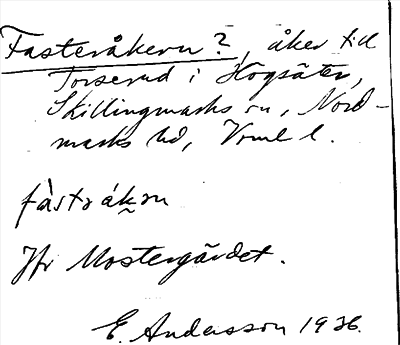 Fasteråkern?, åker till
Torserud i Högsäter,
Skillingmarks sn, Nord-
marks hd, Vrml l.
fàstråkɐn
Jfr Mostergärdet.
E. Andersson 1936.